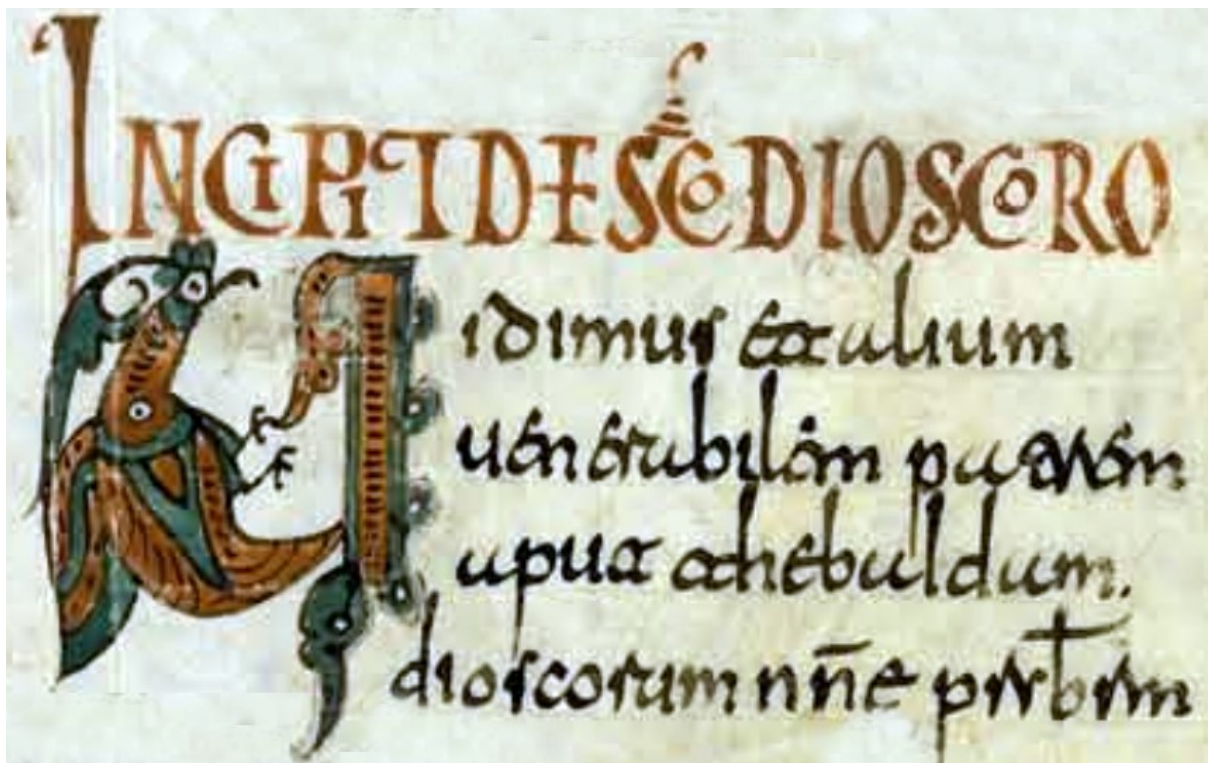 INCIPIT DE SC̄O DIOSCORO
Uidimus et alium
uenerabilem patrem
apud thebaidam.
dioscorum nn̄e prsb̄rm